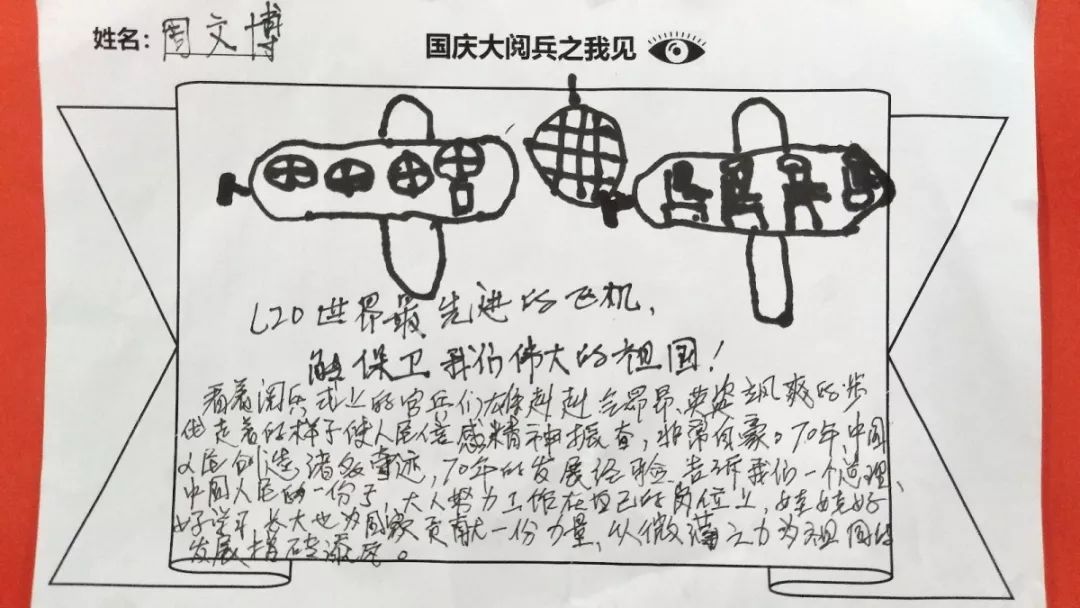 姓名：周文博
国庆大阅兵之我见
L20世界最先进的飞机，
能保卫我们伟大的祖国！
看着阅兵式上的官兵们雄赳赳气昂昂、英姿飒爽的步
伐走着的样子使人民倍感精神振奋，非常自豪。70年，中国
人民创造诸多奇迹，70年的发展经验告诉我们一个道理，
中国人民的一份子，大人努力工作在自己的岗位上，娃娃好
好学习，长大也为国家贡献一份力量，以微薄之力为祖国的
发展增砖添瓦。